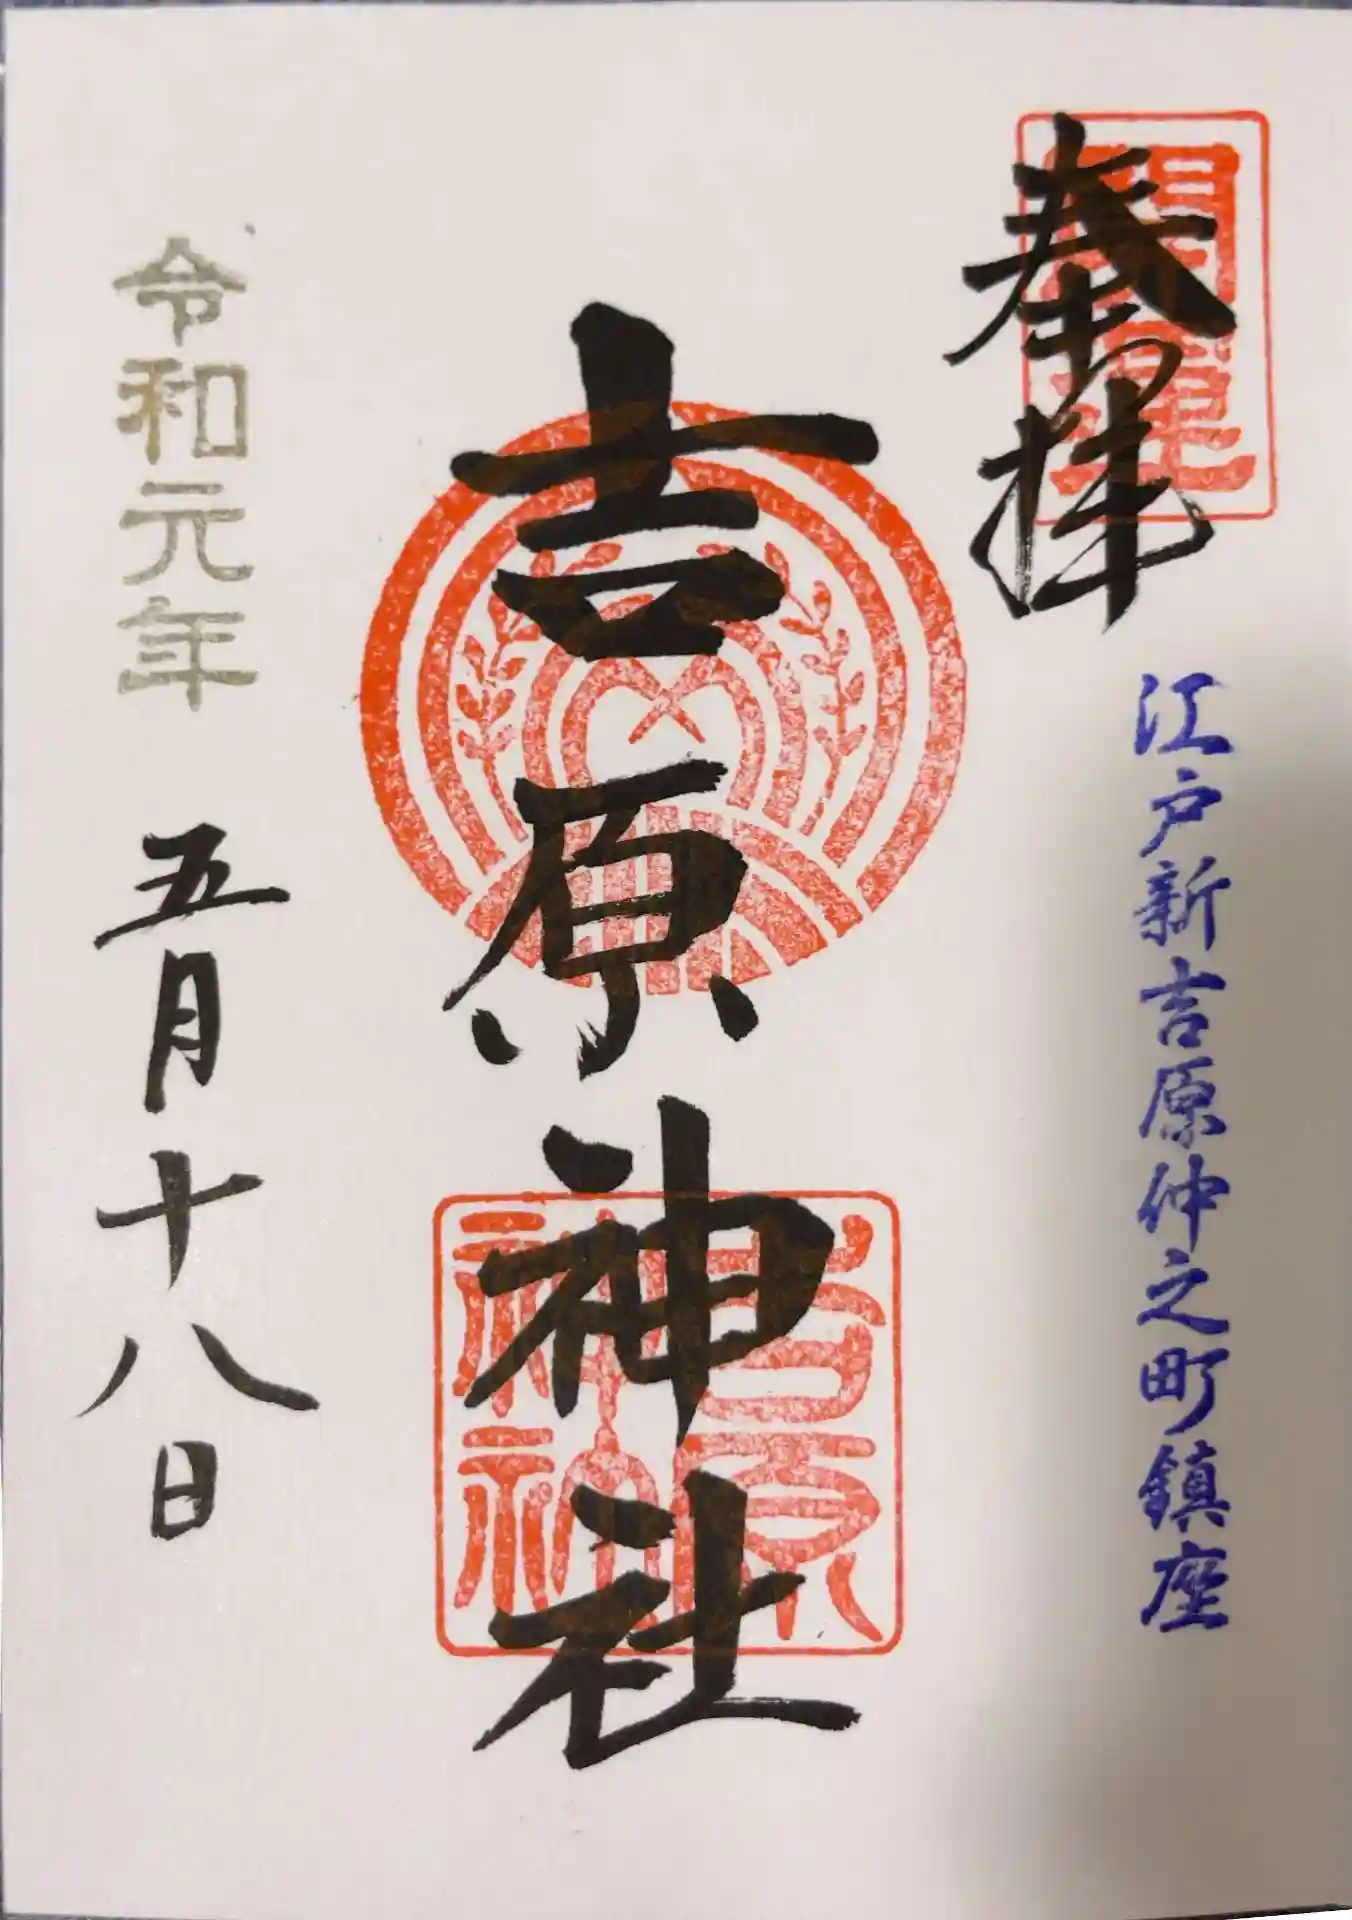 奉拝
開運
江戸新吉原仲之町鎮座
吉原神社
吉原
神社
令和元年 五月十八日